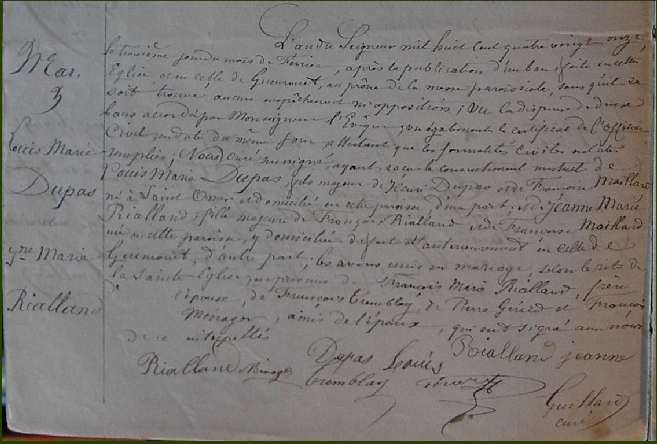 Mar.
3
Louis Marie
Dupas
et
Jne Marie
Rialland
L'an du Seigneur mil huit cent quatre vingt onze,
le troisième jour du mois de Février, après la publication d'un ban faite en cette
Eglise et en celle de Guenrouët, au prône de la messe paroissiale, sans qu'il se
soit trouvé aucun empêchement ni opposition; Vu la dispense de deux
bans accordée par Monseigneur l'Evêque; vu également le certificat de l'officier
Civil en date du même jour, attestant que les formalités civiles ont été
remplies; Nous Curé soussigné, ayant reçu le consentement mutuel de
Louis Marie Dupas fils majeur de Henri Dupas et de Françoise Maillard
né à Saint Omer et domicilié en cette paroisse d'une part; et de Jeanne Marie
Rialland, fille majeure de François Rialland et de Françoise Maillard
née en cette paroisse, y domiciliée de fait et antérieurement en celle de
Guenrouët, d'autre part; les avons unis en mariage, selon le rite de
la Sainte Eglise, en présence de François Marie Rialland, frère de
l'épouse, de François Tremblay, de Pierre Gérard et François
Menager, amis de l'époux, qui ont signé avec nous
de ce interpellés
Rialland Menager Dupas Louis Rialland jeanne
Tremblay
Guillard
curé